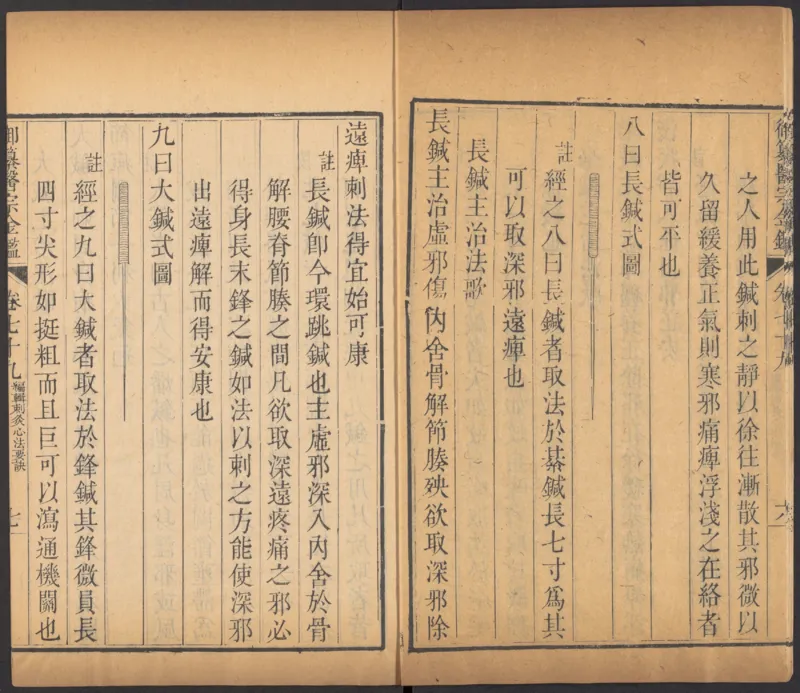 之人用此鍼刺之靜以徐往漸散其邪微以
久留緩養正氣則寒邪痛痺浮淺之在絡者
皆可平也
八曰長鍼式圖
註經之八曰長鍼者取法於綦鍼長七寸爲其
可以取深邪遠痺也
長鍼主治法歌
長鍼主治虛邪傷內舍骨解節腠殃欲取深邪除
遠痺刺法得宜始可康
註長鍼卽今環跳鍼也主虛邪深入內舍於骨
解腰脊節腠之間凡欲取深遠疼痛之邪必
得身長末鋒之鍼如法以刺之方能使深邪
出遠痺解而得安康也
九曰大鍼式圖
註經之九曰大鍼者取法於鋒鍼其鋒微員長
四寸尖形如挺粗而且巨可以瀉通機關也
御纂醫宗金鑑
卷七十九
編輯刺灸心法要訣
七